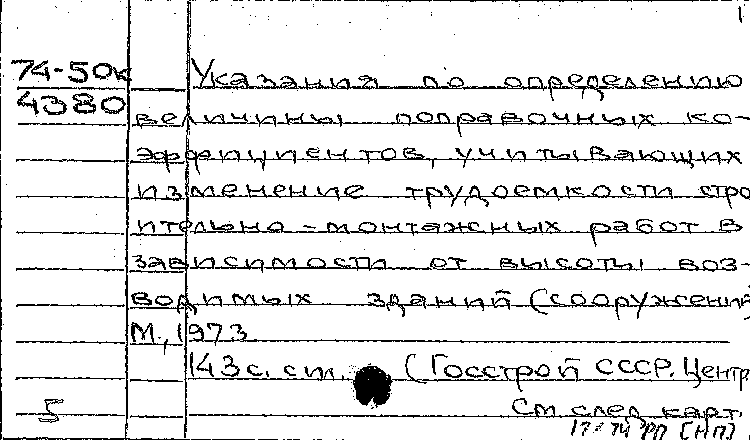 1
74-50к Указания по определению
4380 величины поправочных ко-
эффициентов, учитывающих
изменение трудоемкости стро
ительно-монтажных работ в
зависимости от высоты воз-
водимых зданий (сооружений)
М., 1973
143 с. ст. (Госстрой СССР. Центр
5 См след карт.
17-74 РП [НП]